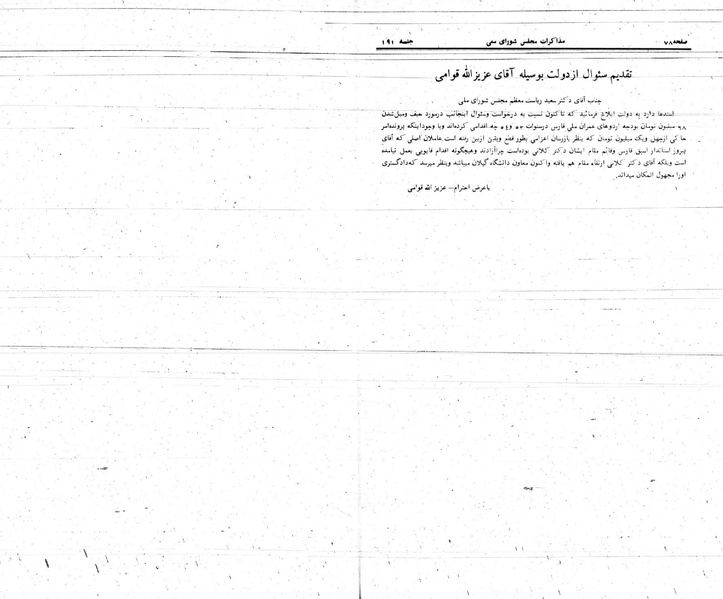 صفحه ۷۸ مذاکرات مجلس شورای ملی جلسه ۱۹۱
تقدیم سئوال از دولت بوسیله آقای عزیزالله قوامی
جناب آقای دکتر سعید ریاست معظم مجلس شورای ملی
استدعا دارد به دولت ابلاغ فرمائید که تاکنون نسبت به درخواست وسئوال اینجانب درمورد حیف ومیل شدن
میلیون تومان بودجه اردوهای عمران ملی فارس درسنوات چه اقدامی کرده‌اند وبا وجود اینکه پرونده امر
حاکی ازچهل ویک میلیون تومان که بنظر بازرسان اعزامی بطور قطع ویقین ازبین رفته است عاملان اصلی که آقای
پیروز استاندار اسبق فارس وقائم مقام ایشان دکتر کلانی بوده‌است چرا آزادند وهیچگونه اقدام قانونی بعمل نیامده
است وبلکه آقای دکتر کلانی ارتقاء مقام هم یافته واکنون معاون دانشگاه گیلان میباشد وبنظر میرسد که دادگستری
اورا مجهول المکان میداند.
باعرض احترام - عزیز الله قوامی